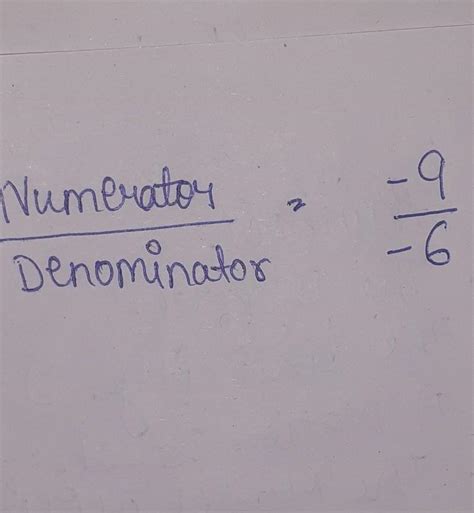 Numerator = -9
Denominator -6